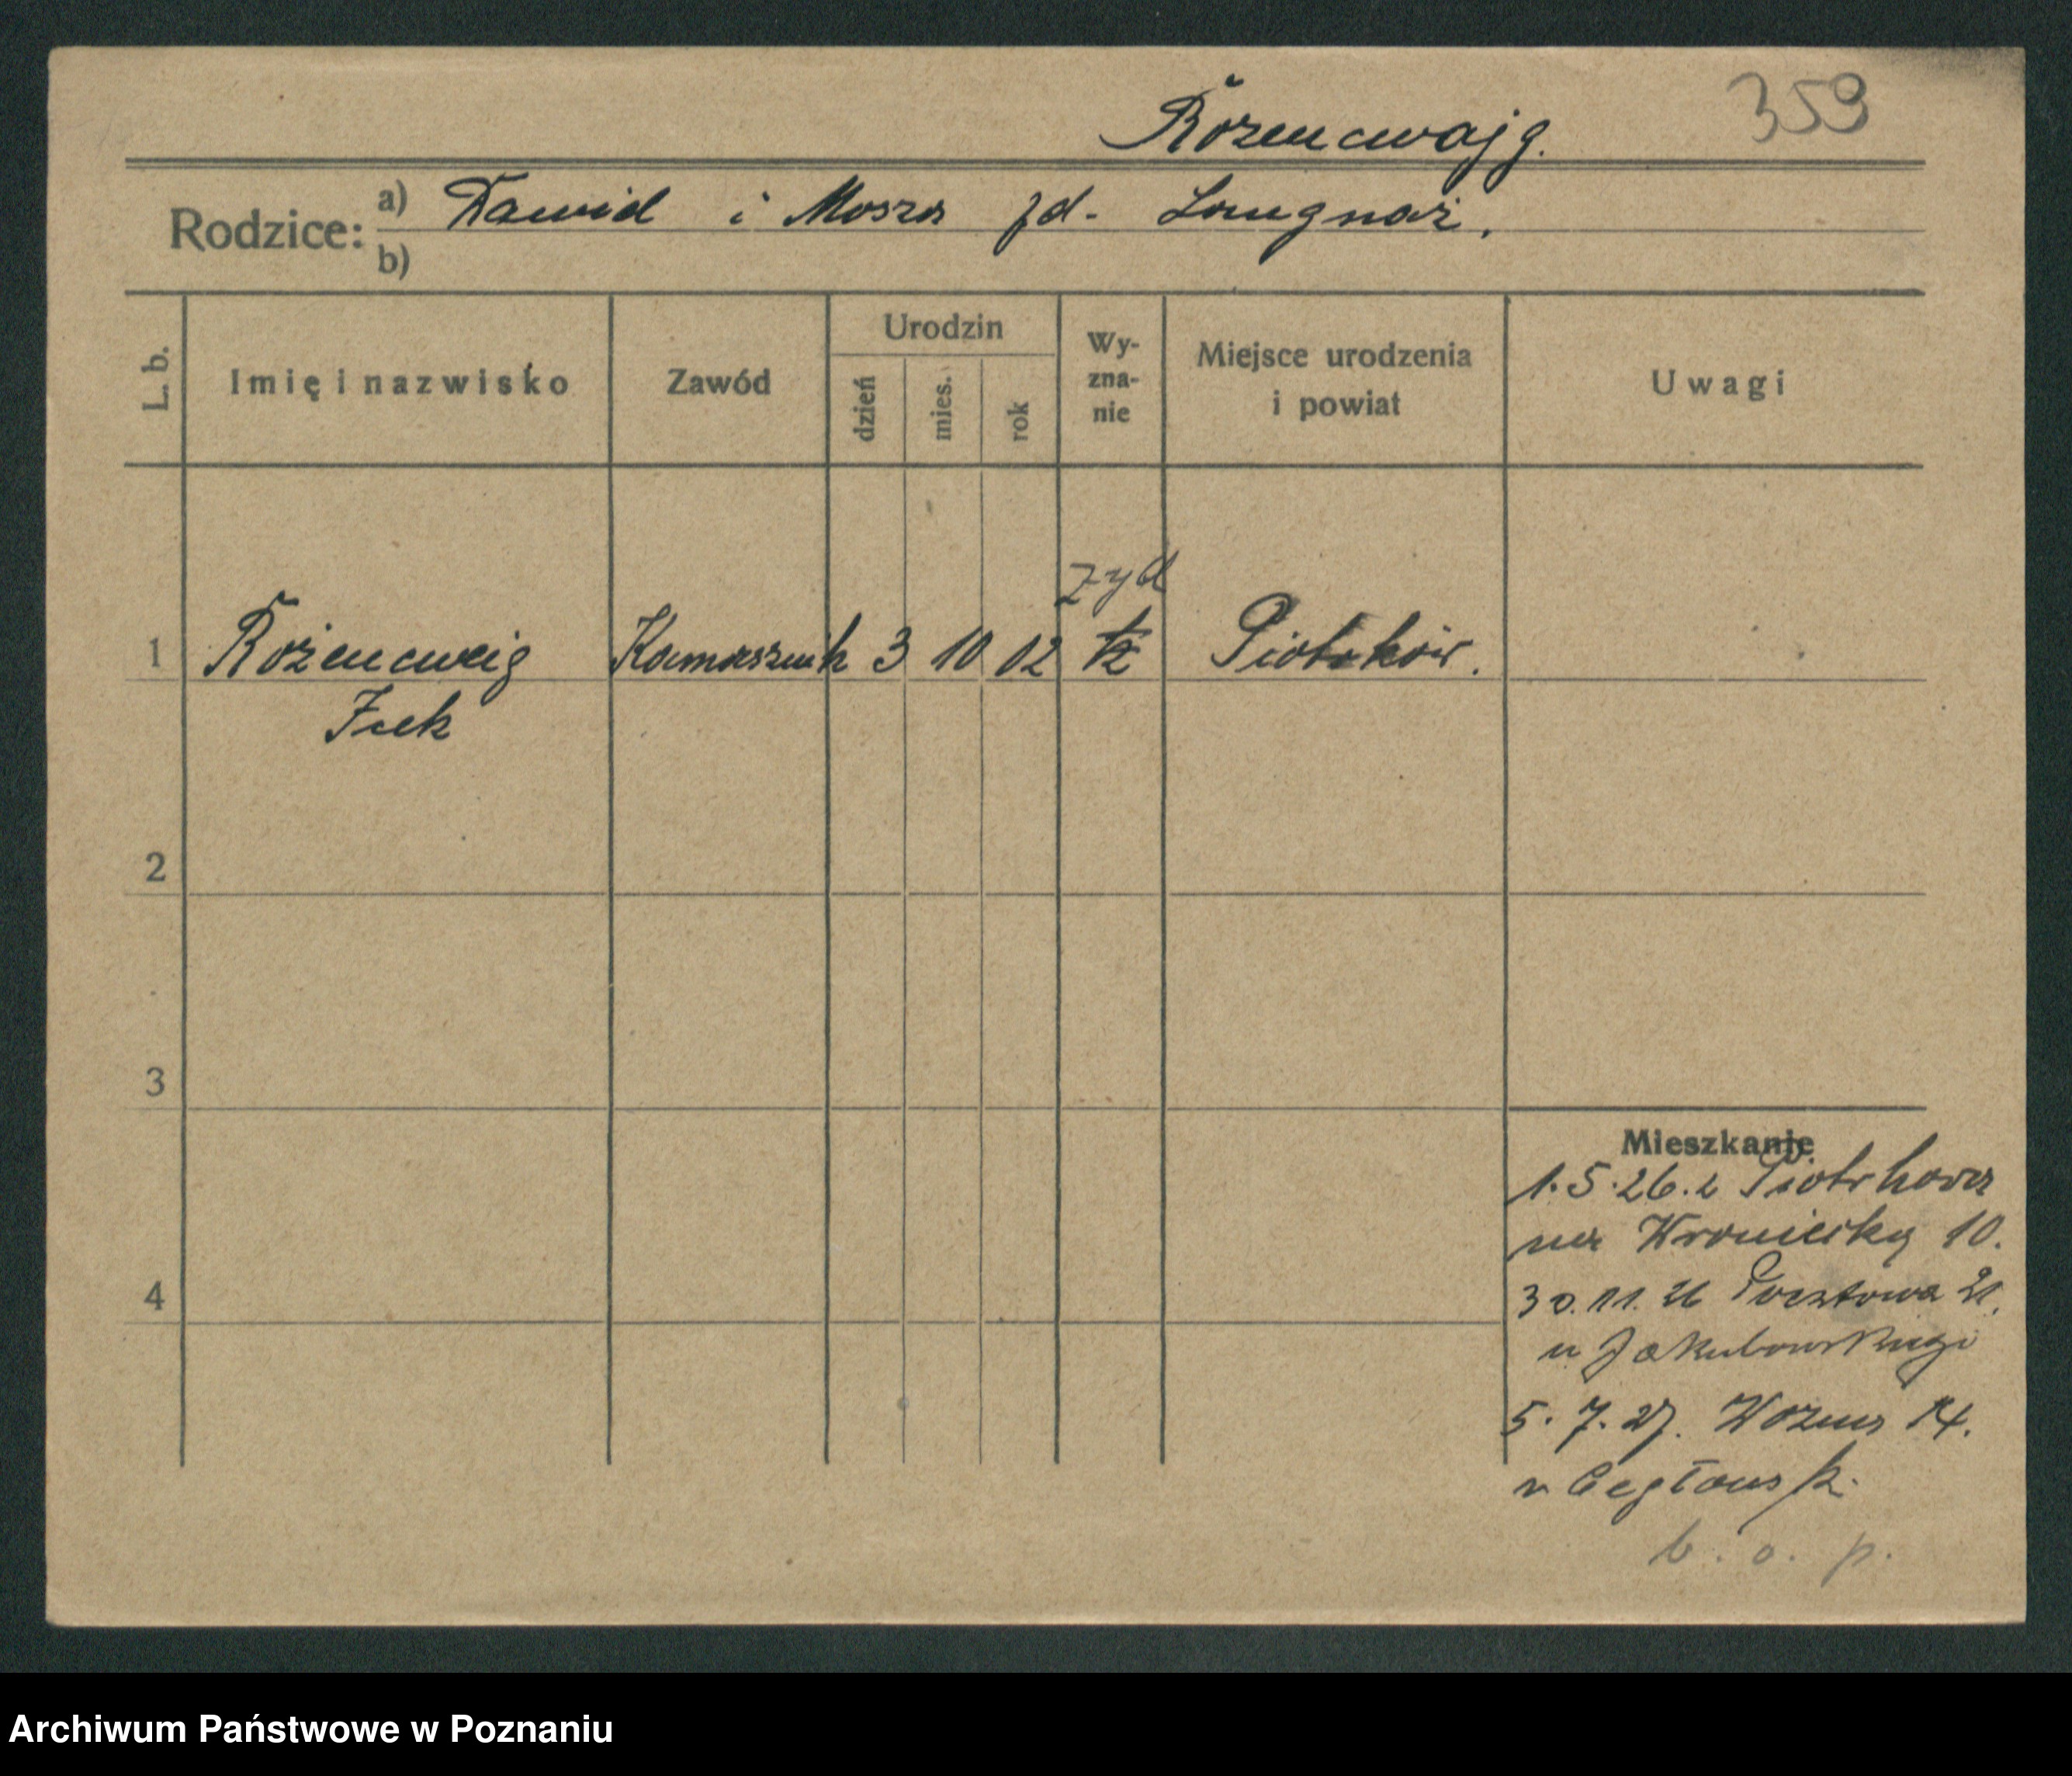 359
Rozencwajg.
Rodzice: a) Dawid i Moszа zd.
b)
L. b. Imię i nazwisko Zawód Urodzin dzień mies. rok Wy-zna-nie Miejsce urodzenia i powiat Uwagi
żyd
1 Rożencweig Kamasznik 3 10 02 Piotrków.
Icek
2
3
4
Mieszkanie
1.5.26. z Piotrkowa
na Wroniecką 10.
30.11.26 Pocztowa 21.
u Jakubowskiego
5.7.27. Wozna 14.
u Cegłowsk.
b. o. p.
Archiwum Państwowe w Poznaniu